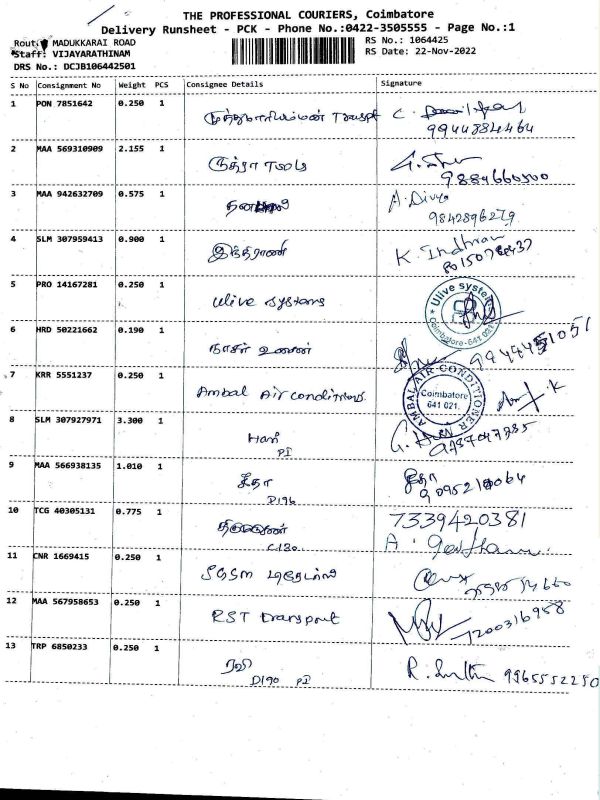 THE PROFESSIONAL COURIERS, Coimbatore
Delivery Runsheet - PCK - Phone No.:0422-3505555 - Page No.:1
Route: MADUKKARAI ROAD
Staff: VIJAYARATHINAM
DRS No.: DCJB106442501
RS No.: 1064425
RS Date: 22-Nov-2022
S No Consignment No Weight PCS Consignee Details Signature
1 PON 7851642 0.250 1 முத்துமாரியம்மன் C.
9944384464
2 MAA 569310909 2.155 1 ருத்ரா
9884660500
3 MAA 942632709 0.575 1 A. Divya
9842896279
4 SLM 307959413 0.900 1 இந்திராணி K. Indhrani
5 PRO 14167281 0.250 1 Ulive systems Ulive system
Coimbatore-641 021
6 HRD 50221662 0.190 1 நாசர் உசேன்
7 KRR 5551237 0.250 1 Ambal Air conditioners AMBAL AIR CONDITIONER
Coimbatore
641 021.
8 SLM 307927971 3.300 1 Hari
PI
9 MAA 566938135 1.010 1 கீதா கீதா
D196
10 TCG 40305131 0.775 1 7339420381
C130 A. Gowtham
11 CNR 1669415 0.250 1
12 MAA 567958653 0.250 1 RST Transport
7200316958
13 TRP 6850233 0.250 1 ரவி R. 9965552250
D190 PI